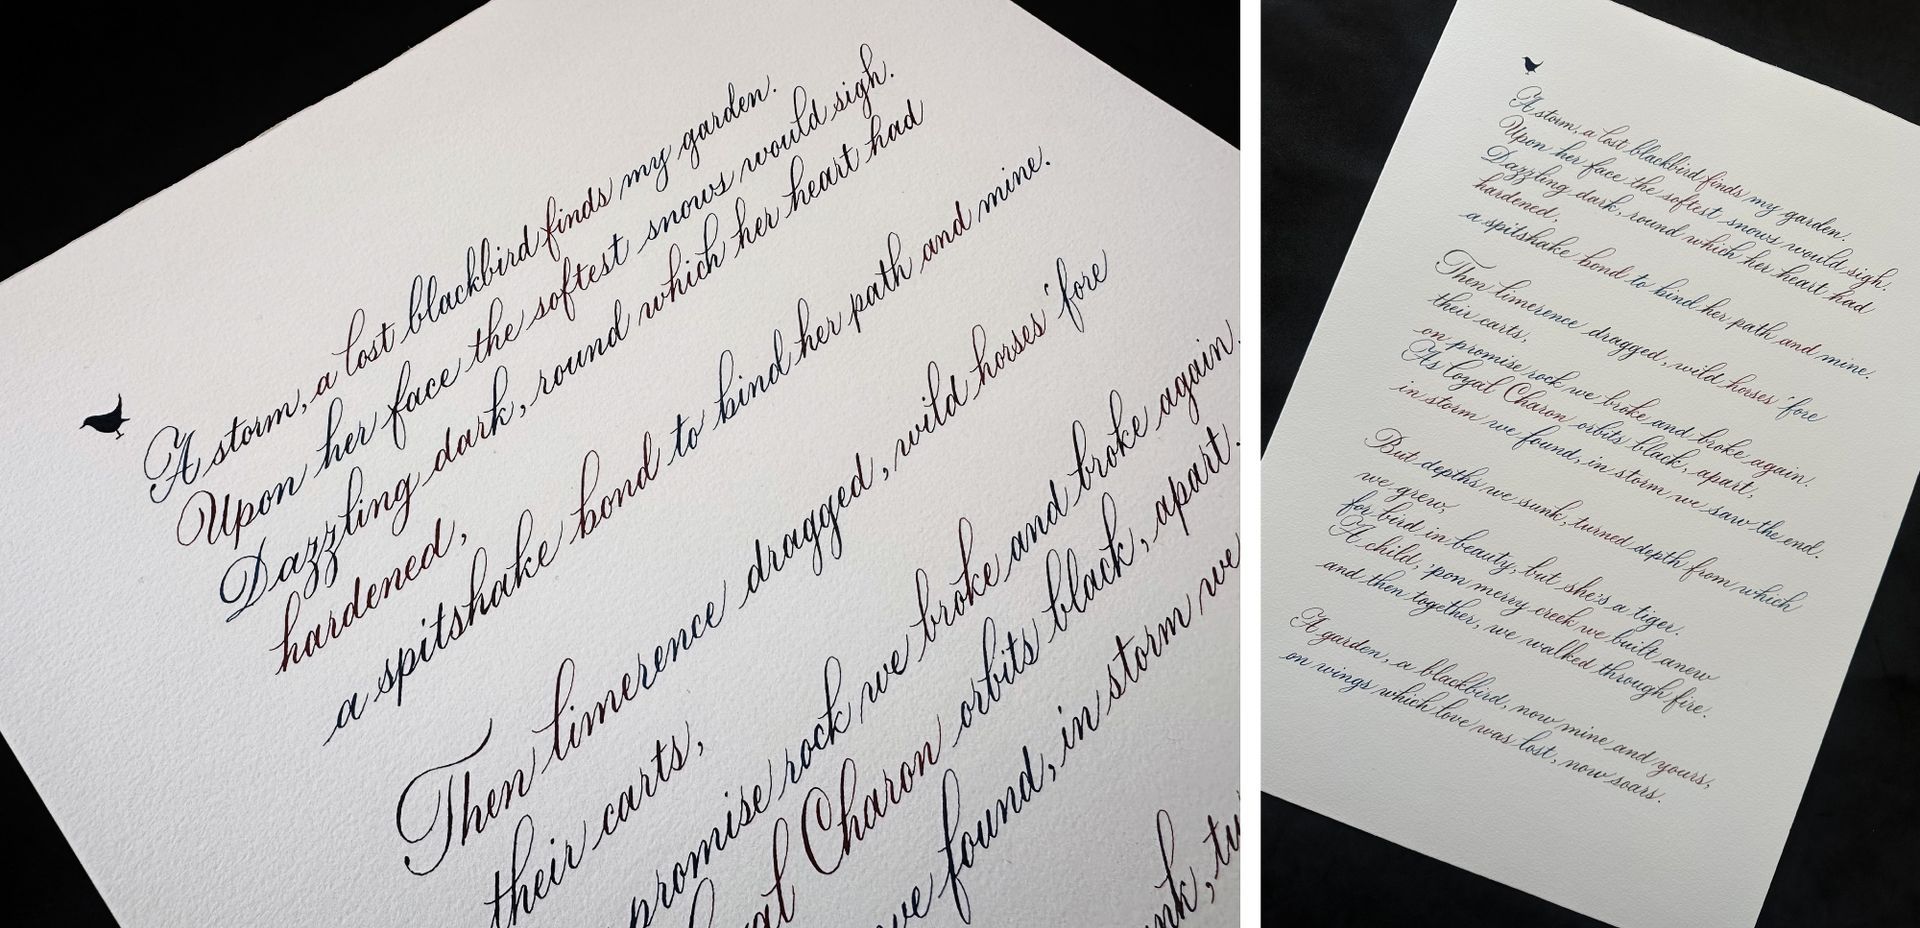 A storm, a lost blackbird finds my garden.
Upon her face the softest snows would sigh.
Dazzling dark, round which her heart had
hardened,
a spitshake bond to bind her path and mine.
Then limerence dragged, wild horses 'fore
their carts,
promise rock we broke and broke again.
yal Charon orbits black, apart.
we found, in storm we
nk, tu
A storm, a lost blackbird finds my garden.
Upon her face the softest snows would sigh.
Dazzling dark, round which her heart had
hardened,
a spitshake bond to bind her path and mine.
Then limerence dragged, wild horses 'fore
their carts,
on promise rock we broke and broke again.
As loyal Charon orbits black, apart,
in storm we found, in storm we saw the end.
But depths we sunk, turned depth from which
we grew,
for bird in beauty, but she's a tiger.
A child, 'pon merry creek we built anew
and then together, we walked through fire.
A garden, a blackbird, now mine and yours,
on wings which love was lost, now soars.